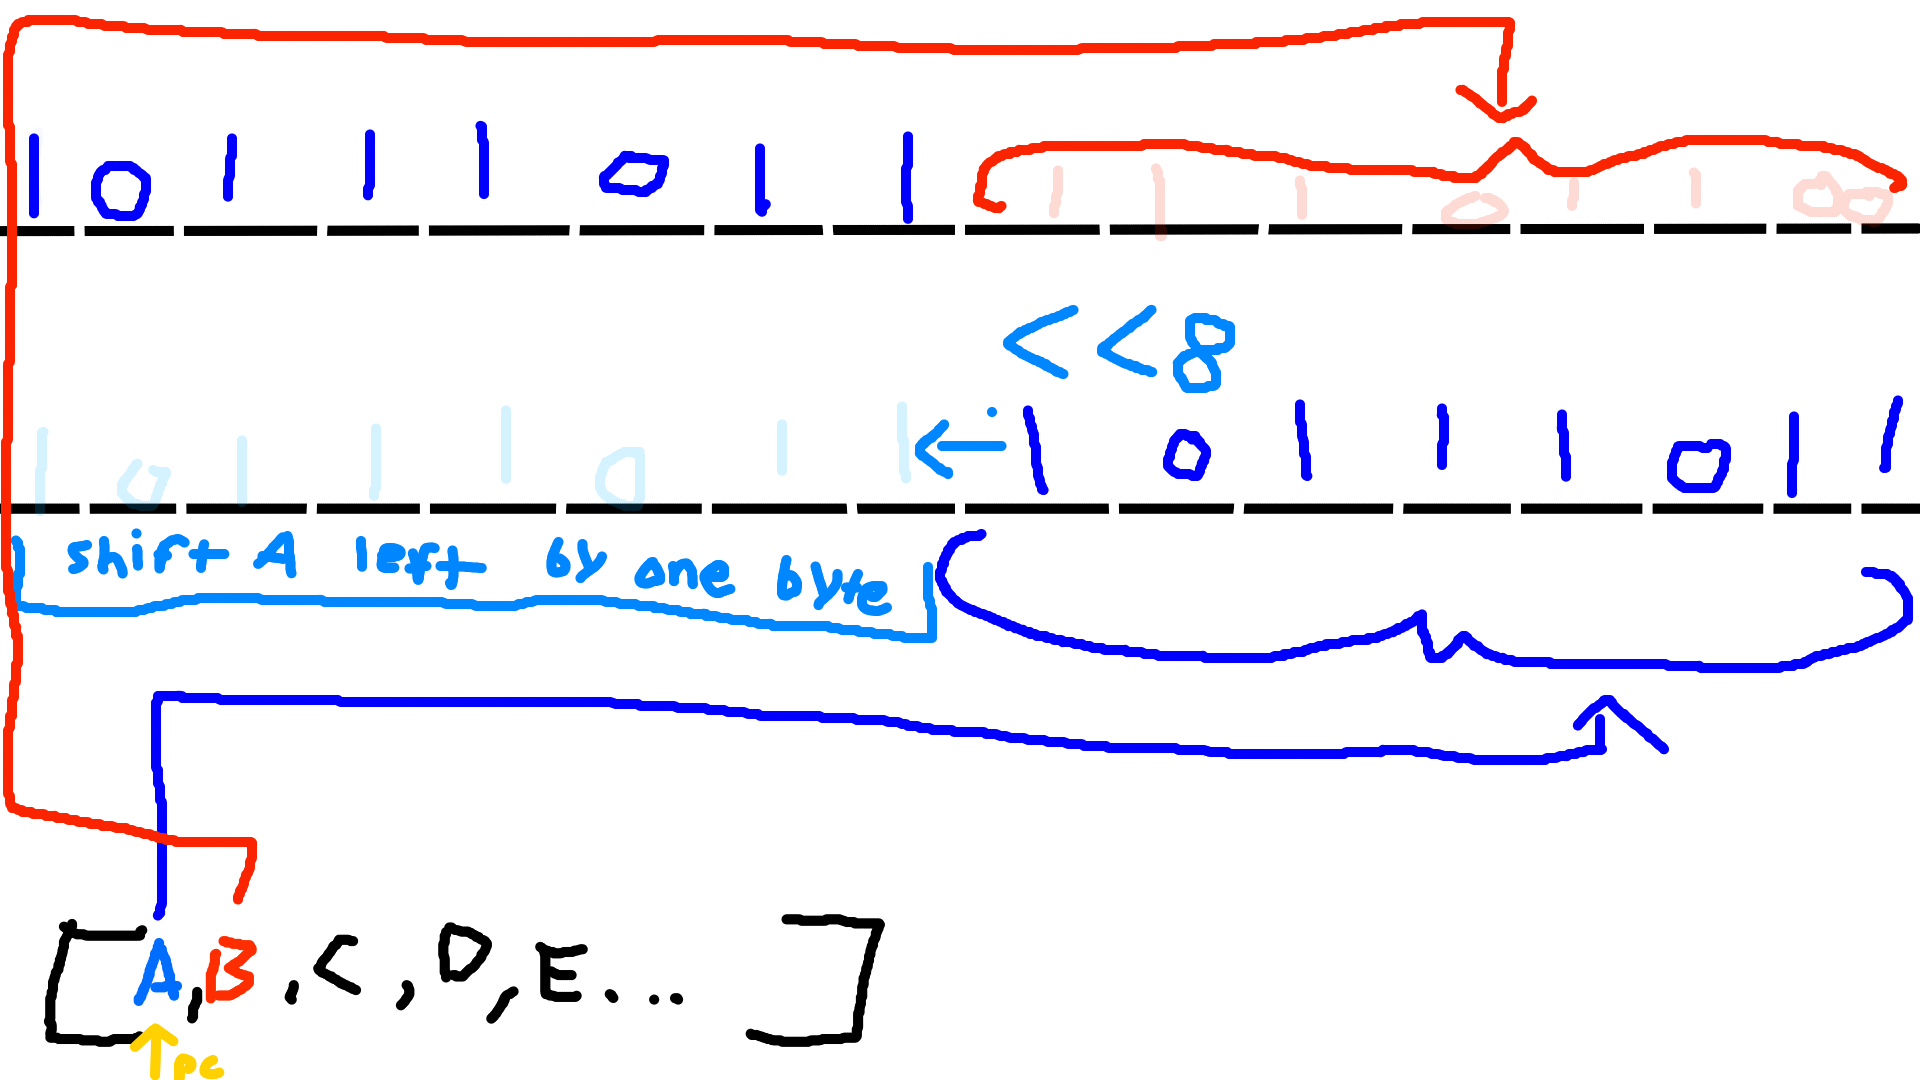 1 0 1 1 1 0 1 1 1 1 1 0 1 1 0 0
<<8
1 0 1 1 1 0 1 1 1 0 1 1 1 0 1 1
shift A left by one byte
[A, B, C, D, E... ]
pc